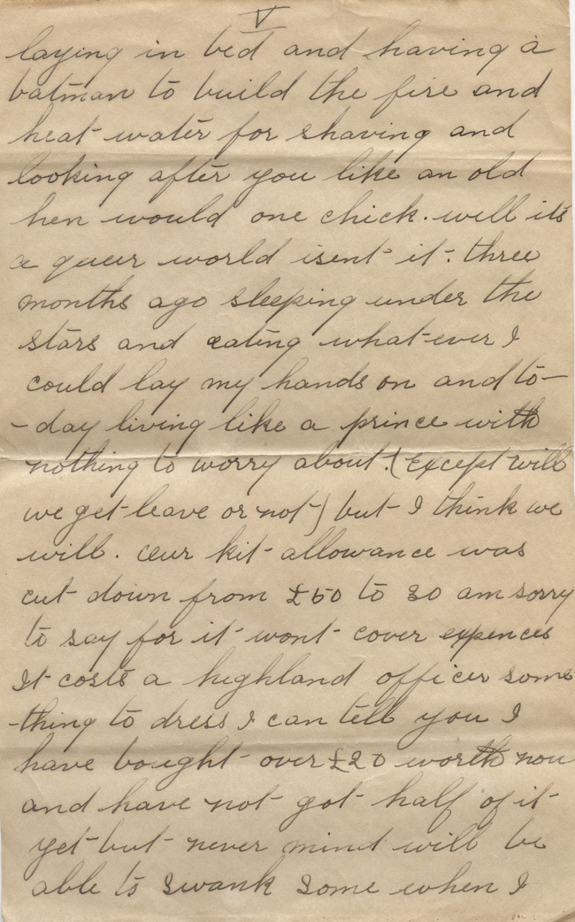 V
laying in bed and having a
batman to build the fire and
heat water for shaving and
looking after you like an old
hen would one chick. will its
a queer world isent it. three
months ago sleeping under the
stars and eating what-ever I
could lay my hands on and to-
-day living like a prince with
nothing to worry about. (Except will
we get leave or not) but I think we
will. our kit allowance was
cut down from £50 to 30 am sorry
to say for it wont cover expences
It costs a highland officer some
-thing to dress I can tell you I
have bought over £20 worth now
and have not got half of it
yet but never mind will be
able to swank some when I